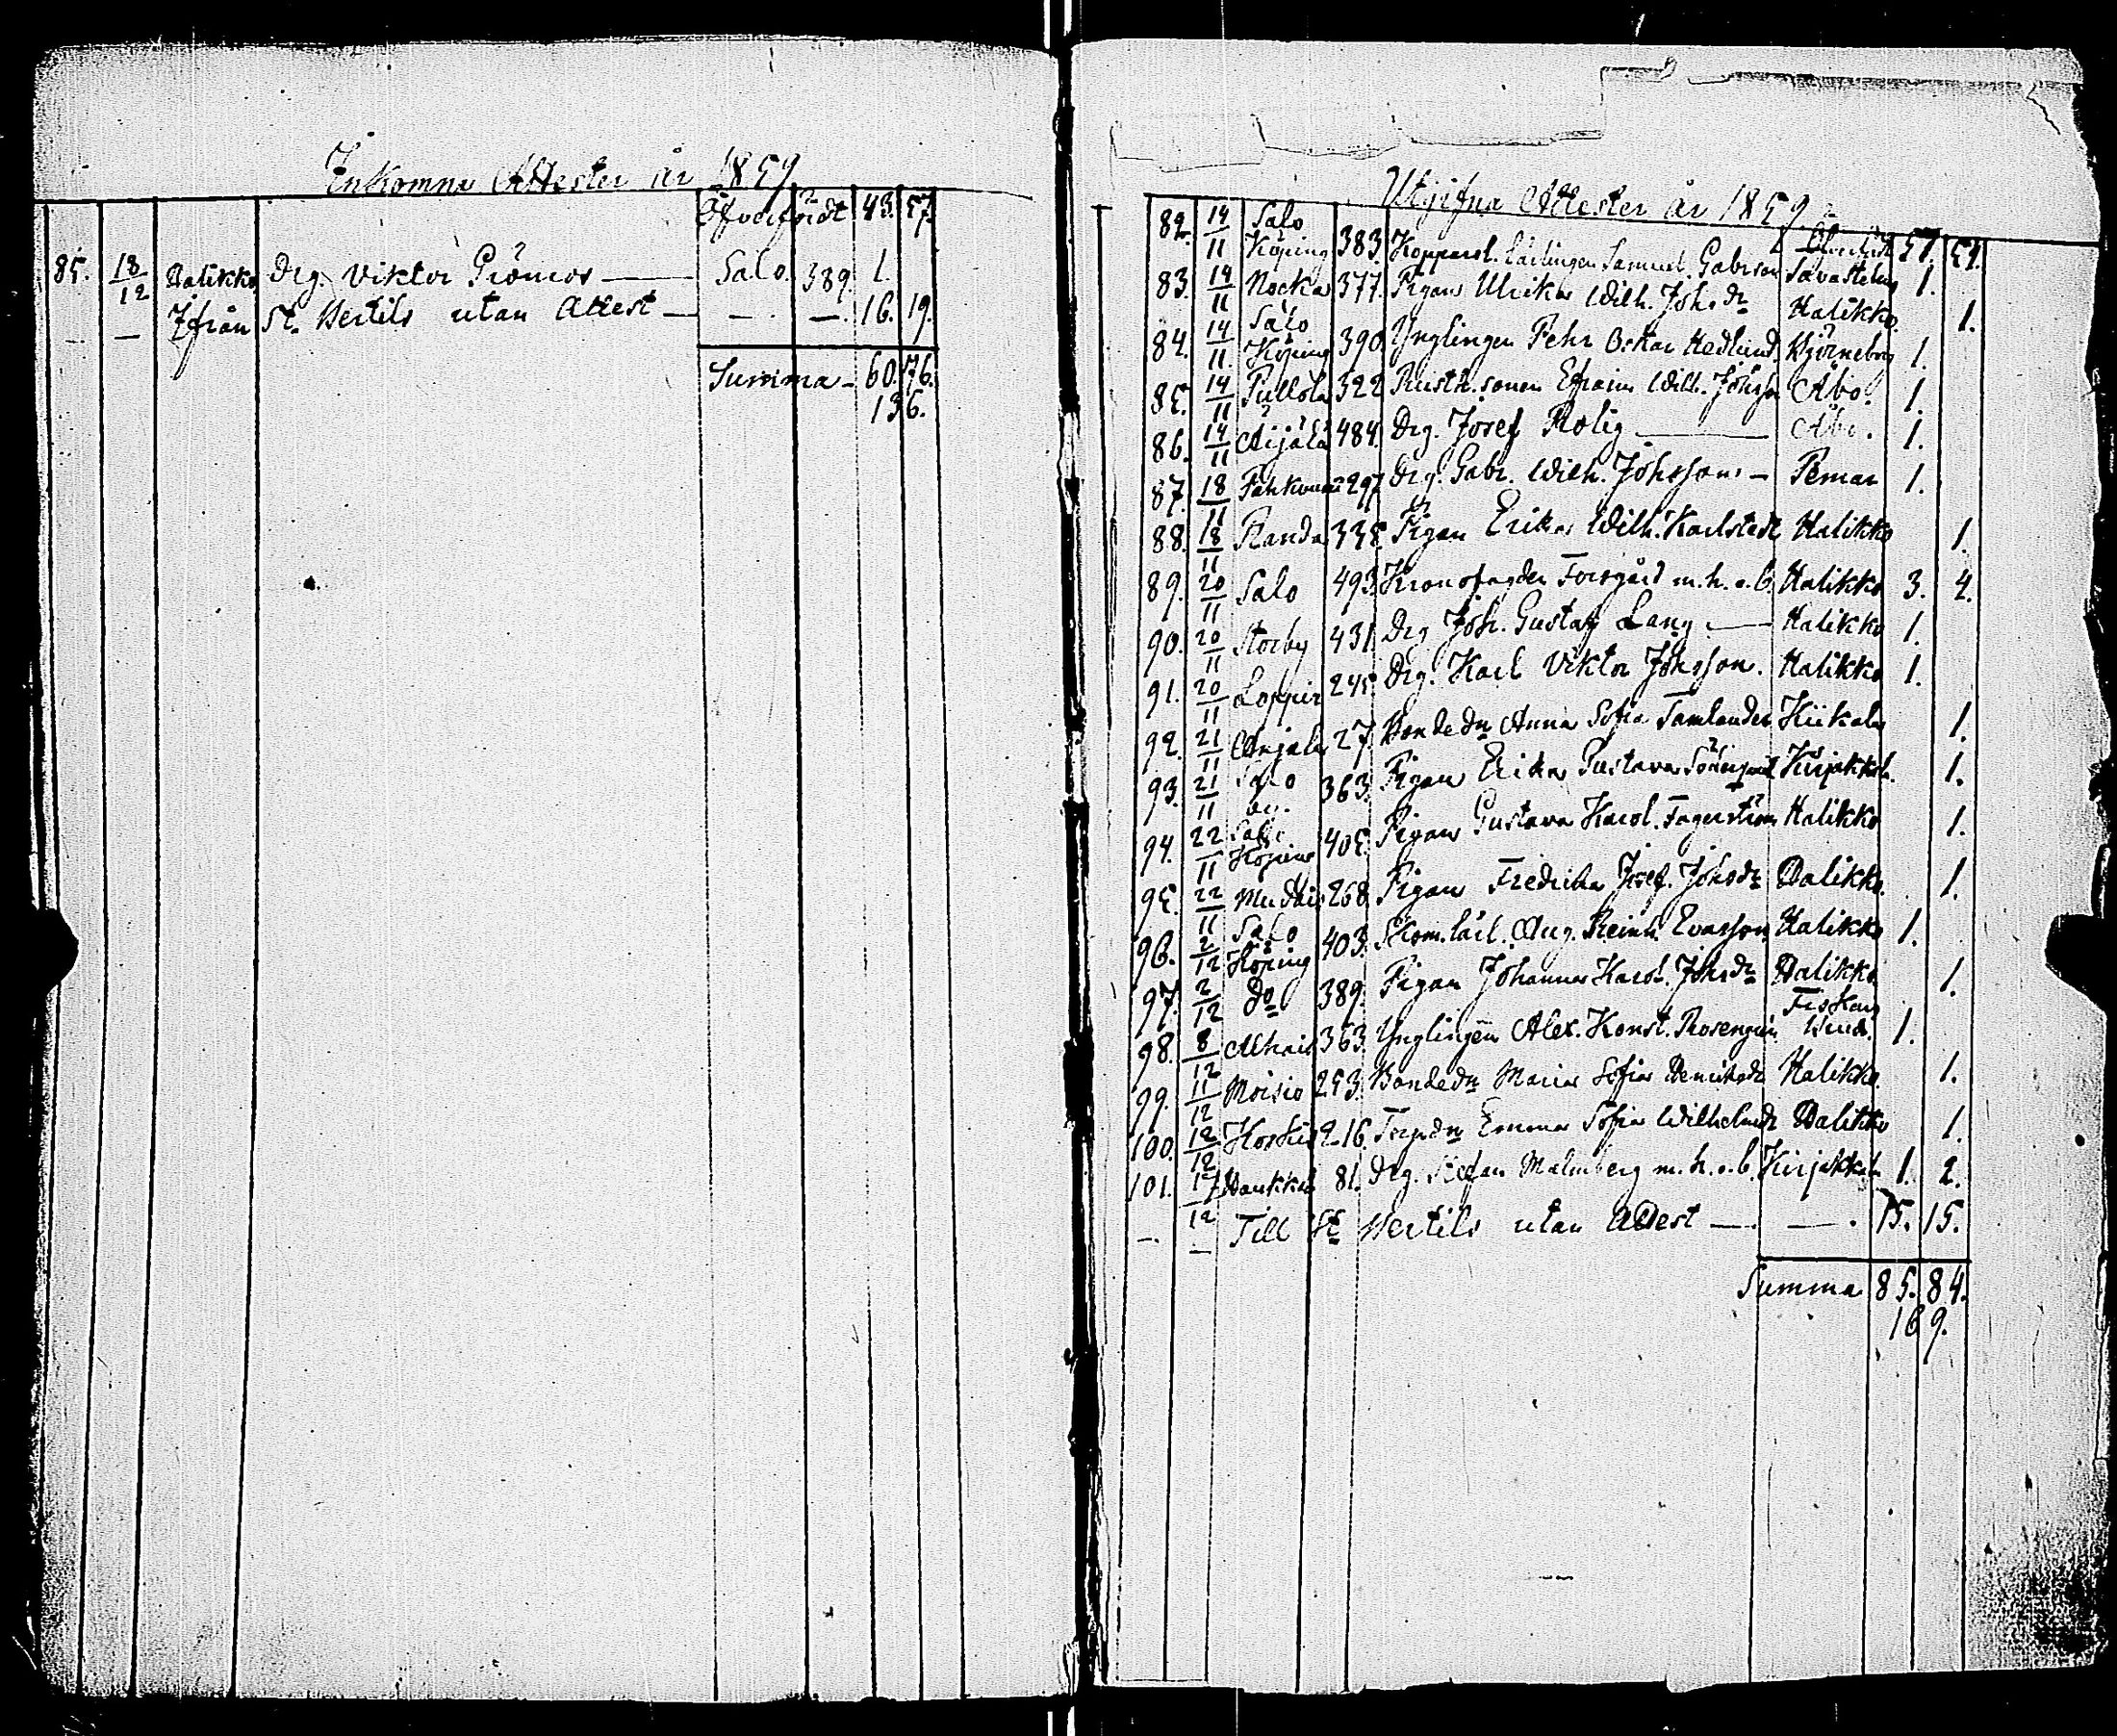 Inkomna Attester år 1859
Öfverfördt 43. 57.
85. 18/12 Halikko Drg Viktor Grönroos — Salo. 389. 1.
— — Ifrån St. Bertils utan Attest — — . — . 16. 19.
Summa - 60. 76.
136.
Utgifna Attester år 1859
82. 14/11 Salo Köping 383. Kopparsl. Lärlingen Samuel Gabrsson Tavastehus 1.
83. 14/11 377. Pigan Ulrika Wilh. Johsdr Halikko. 1.
84. 14/11 Salo Köping 390 Ynglingen Pehr Oskar Hedlund Björneborg 1.
85. 14/11 Pullola 322 Rusth. sonen Efraim Wilh. Johsson Åbo. 1.
86. 14/11 Aijälä 484. Drg. Josef Rolig — Åbo. 1.
87. 18/11 297 Drg. Gabr. Wilh. Johsson - Pemar 1.
88. 18/11 338. Pigan Erika Wilh. Karlstedt Halikko 1.
89. 20/11 Salo 493. Kronofogden Forsgård m. h. o. b. Halikko 3. 4.
90. 20/11 Storby 431. Drg Joh. Gustaf Lang — Halikko 1.
91. 20/11 245. Drg. Karl Viktor Johsson. Halikko 1.
92. 21/11 Anjala 27. Bondedr Anna Sofia Tamlander Kiikala 1.
93. 21/11 Salo 363. Pigan Erika Gustava Kirjakkala. 1.
94. 22/11 Salo Köping 405. Pigan Gustava Karol. Fagerström Halikko 1.
95. 22/11 268. Pigan Fredrika Josef. Johsdr Halikko. 1.
96. 2/12 Salo Köping 403. Skom. lärl. Aug. Reinh. Evasson Halikko 1.
97. 2/12 Do 389. Pigan Johanna Karol. Johsdr Halikko 1.
98. 8/12 363. Ynglingen Alex. Konst. Rosengrén Fiskars 1.
99. 11/12 Moisio 253. Bondedr Maria Sofia Halikko. 1.
100. 12/12 216. Torpdr Emma Sofia Wilhelmsdr Halikko 1.
101. 17/12 81. Drg. Stefan Malmberg m. h. o. b. Kirjakkala 1. 2.
— . — Till St Bertils utan Attest — . — . 15. 15.
Summa 85. 84.
169.